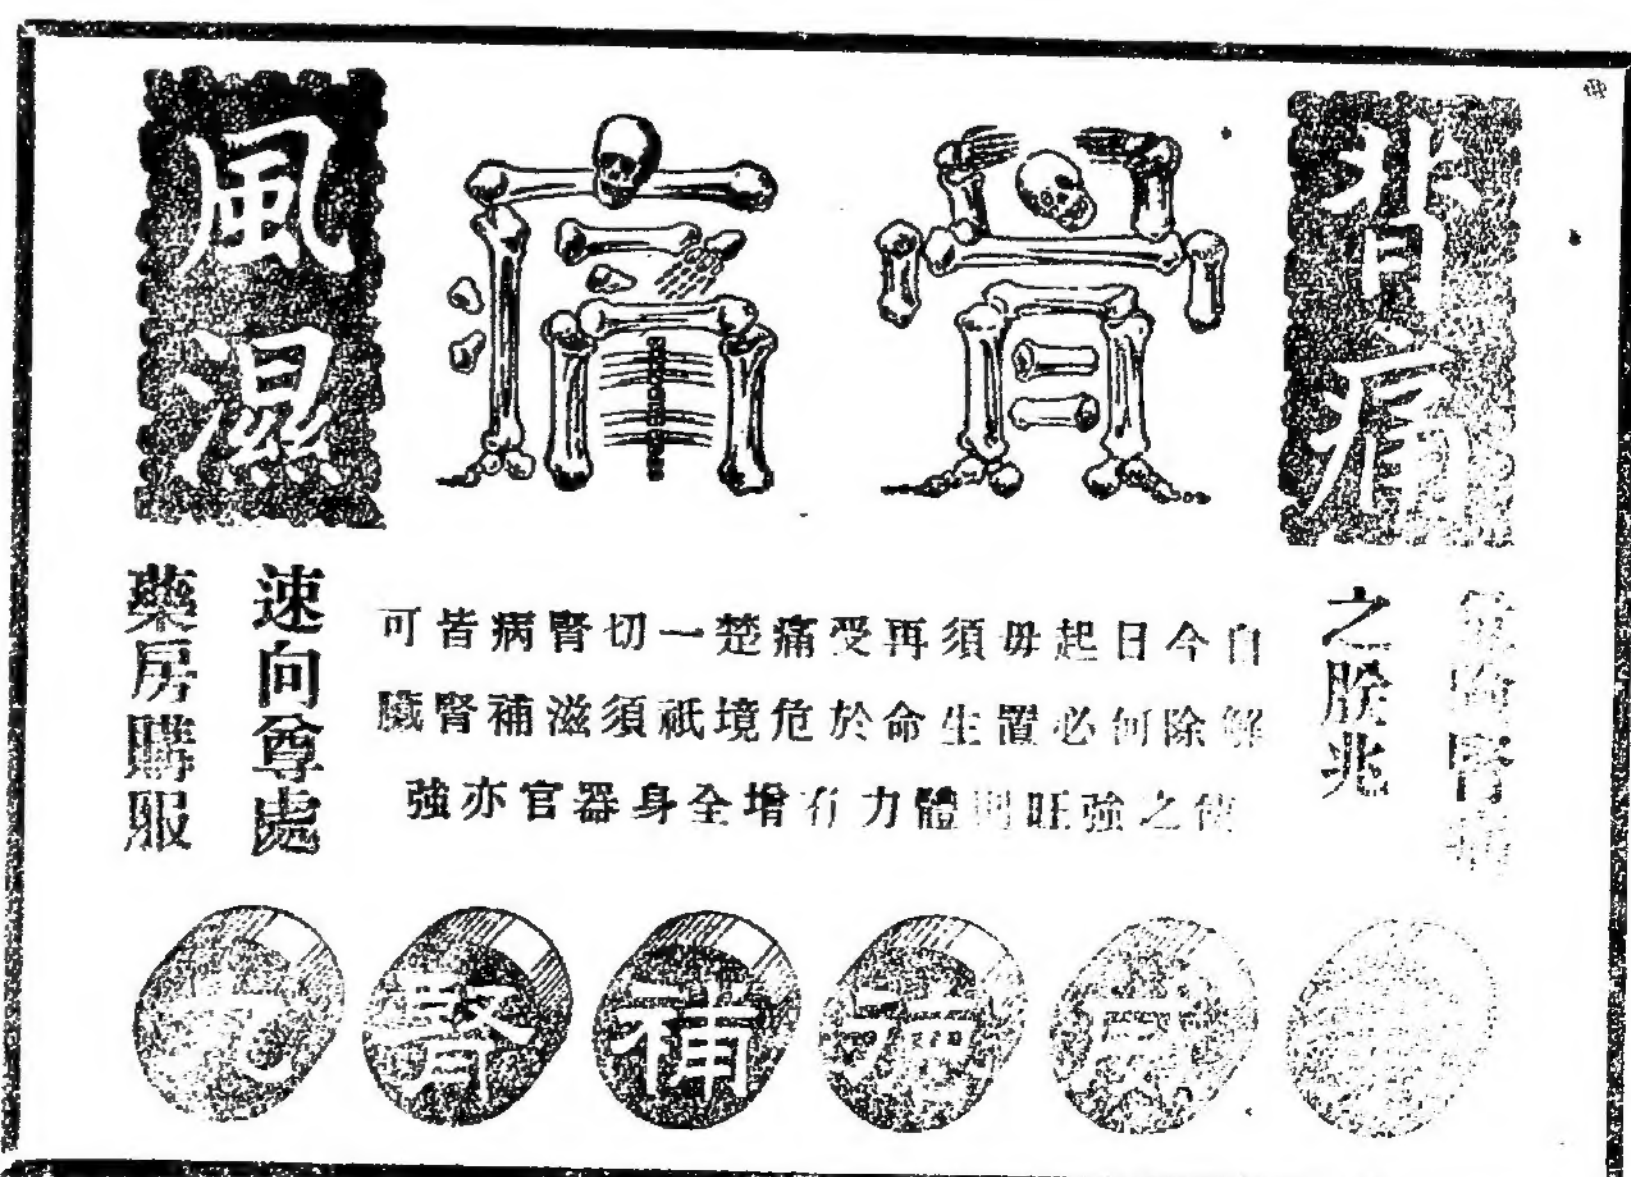 背痛
骨痛
風濕
腎病
之朕兆
自今日起毋須再受痛楚一切腎病皆可
解除何必置生命於危境祇須滋補腎臟
使之強旺則體力有增全身器官亦強
速向尊處
藥房購服
威德補腎丸